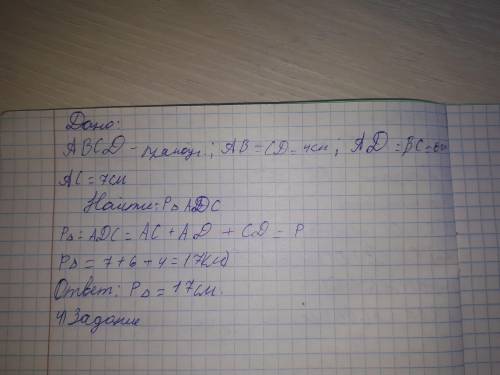 Дано:
ABCD - прямоуг.; AB = CD = 4см; AD = BC = 6см
AC = 7см
Найти: P△ADC
P△ = ADC = AC + AD + CD = P
P△ = 7 + 6 + 4 = 17(см)
Ответ: P△ = 17см.
4) Задание